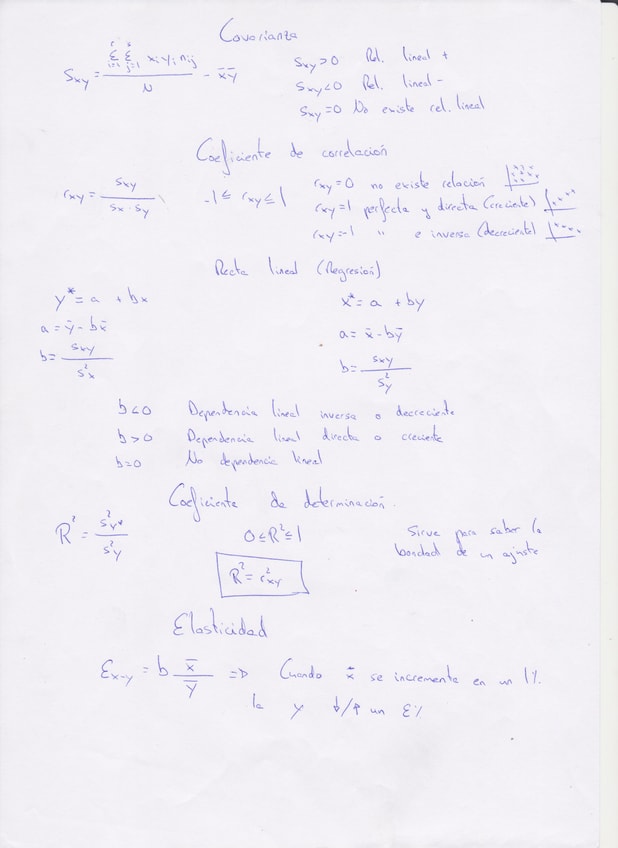 Covarianza
Sxy = Σ(i=1, r) Σ(j=1, s) xi yi nij / N - x̄ȳ
Sxy>0 Rel. lineal +
Sxy<0 Rel. lineal -
Sxy=0 No existe rel. lineal
Coeficiente de correlación
rxy = Sxy / Sx·Sy
-1 ≤ rxy ≤ 1
rxy=0 no existe relación
rxy=1 perfecta y directa (creciente)
rxy=-1 " e inversa (decreciente)
Recta lineal (Regresión)
y* = a + bx
a = ȳ - bx̄
b = Sxy / S²x
x* = a + by
a = x̄ - bȳ
b = Sxy / S²y
b<0 Dependencia lineal inversa o decreciente
b>0 Dependencia lineal directa o creciente
b=0 No dependencia lineal
Coeficiente de determinación.
R² = S²y* / S²y
0 ≤ R² ≤ 1
R² = r²xy
Sirve para saber la
bondad de un ajuste
Elasticidad
Ex-y = b x̄ / ȳ => Cuando x̄ se incrementa en un 1%
la y ↓/↑ un E%